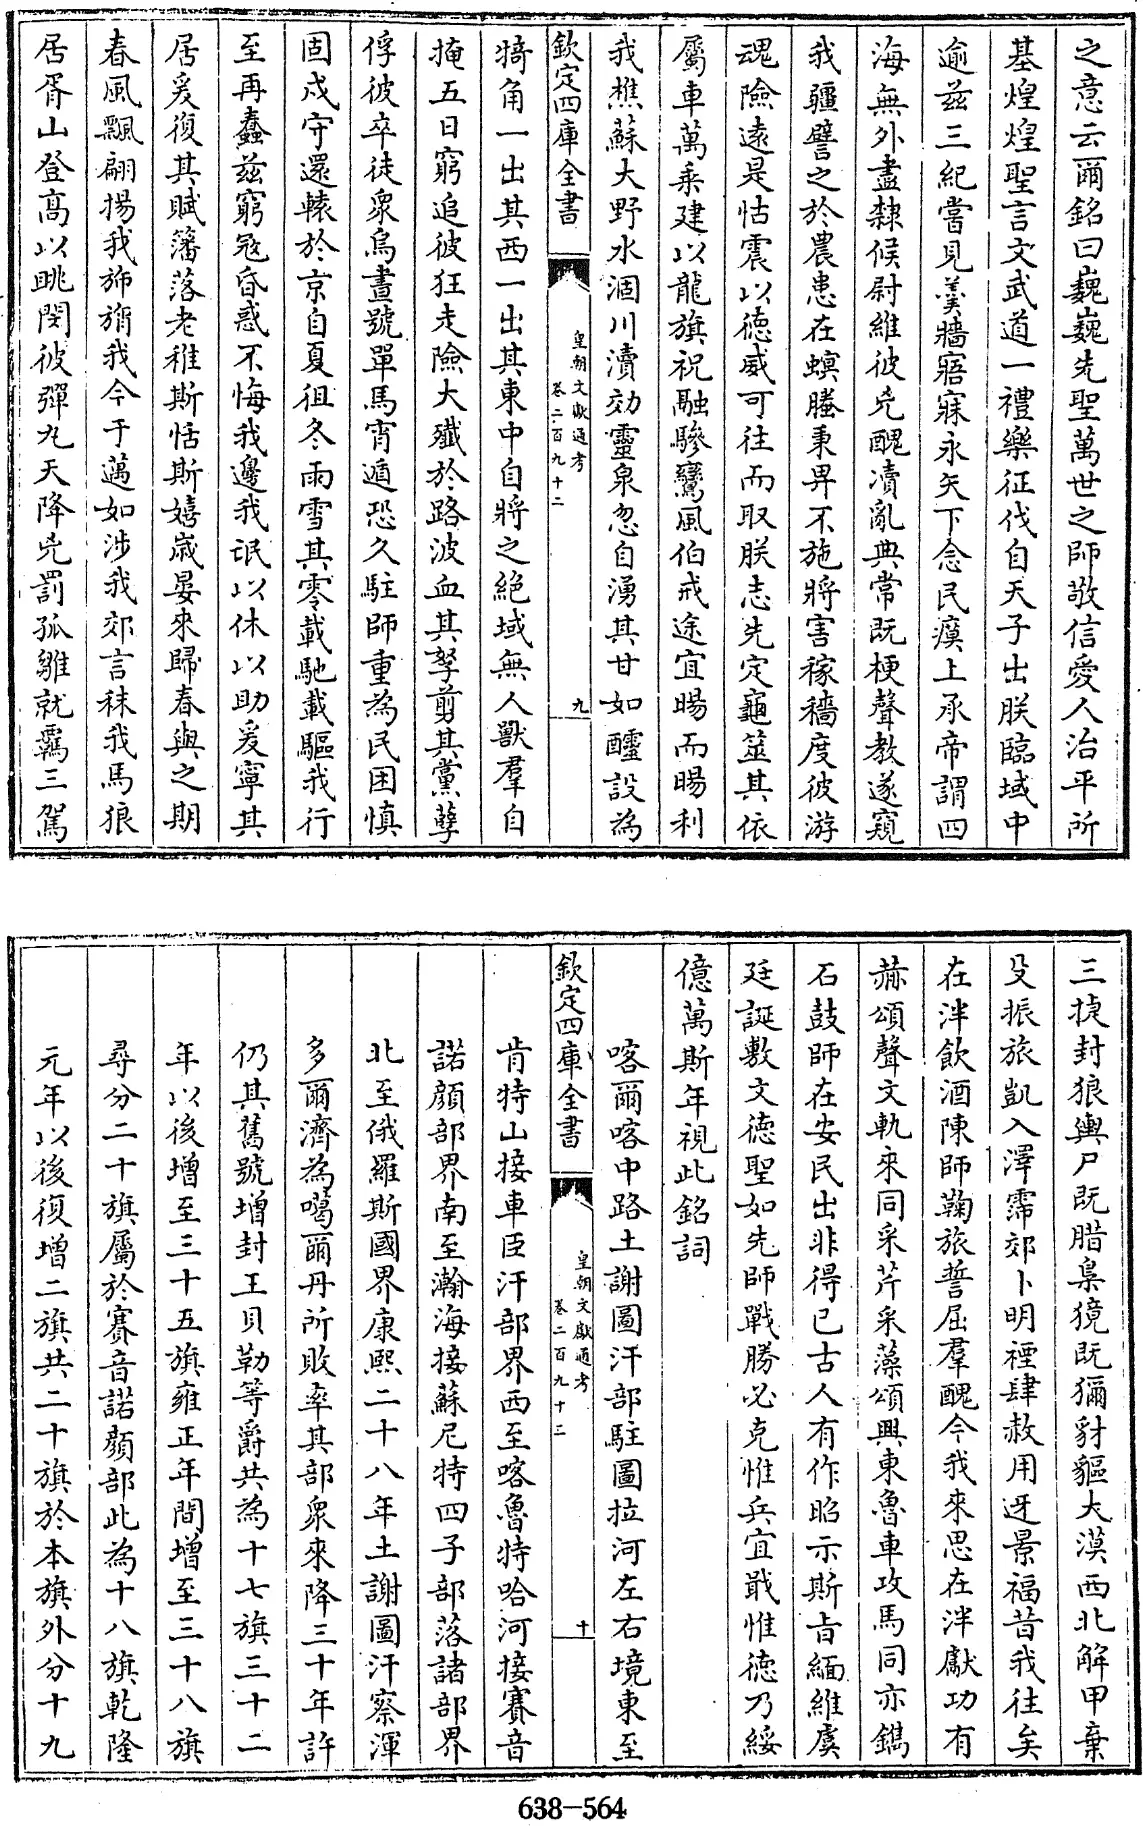 之意云爾銘曰巍巍先聖萬世之師敬信愛人治平所
基煌煌聖言文武道一禮樂征伐自天子出朕臨域中
逾兹三紀嘗見羮牆寤寐永矢下念民瘼上承帝謂四
海無外盡隸候尉維彼兇醜凟亂典常既梗聲教遂窺
我疆譬之於農患在螟螣秉畀不施將害稼穡度彼游
魂險逺是怙震以德威可往而取朕志先定龜筮其依
屬車萬乘建以龍旗祝融驂鸞風伯戒途宜暘而暘利
我樵蘇大野水涸川瀆効靈泉忽自湧其甘如醴設為
欽定四庫全書
皇朝文獻通考
卷二百九十二
九
犄角一出其西一出其東中自將之絶域無人獸羣自
掩五日窮追彼狂走險大殲於路波血其孥剪其黨孽
俘彼卒徒衆烏晝號單馬宵遁恐久駐師重為民困慎
固戍守還轅於京自夏徂冬雨雪其零載馳載驅我行
至再蠢兹窮冦昏惑不悔我邊我氓以休以助爰寧其
居爰復其賦籓落老稚斯恬斯嬉嵗晏來歸春與之期
春風飄翩揚我斾旃我今于邁如涉我郊言秣我馬狼
居胥山登高以眺閔彼彈丸天降兇罰孤雛就羈三駕
三捷封狼輿尸既腊梟獍既獮豺貙大漠西北解甲棄
殳振旅凱入澤霈郊卜明禋肆赦用迓景福昔我往矣
在泮飲酒陳師鞠旅誓屈羣醜今我來思在泮獻功有
赫頌聲文軌來同采芹采藻頌興東魯車攻馬同亦鐫
石鼓師在安民出非得已古人有作昭示斯旨緬維虞
廷誕敷文德聖如先師戰勝必克惟兵宜戢惟德乃綏
億萬斯年視此銘詞
喀爾喀中路土謝圖汗部駐圖拉河左右境東至
欽定四庫全書
皇朝文獻通考
卷二百九十二
十
肯特山接車臣汗部界西至喀魯特哈河接賽音
諾顔部界南至瀚海接蘇尼特四子部落諸部界
北至俄羅斯國界康熙二十八年土謝圖汗察渾
多爾濟為噶爾丹所敗率其部衆來降三十年許
仍其舊號增封王貝勒等爵共為十七旗三十二
年以後增至三十五旗雍正年間增至三十八旗
尋分二十旗屬於賽音諾顔部此為十八旗乾隆
元年以後復增二旗共二十旗於本旗外分十九
638-564